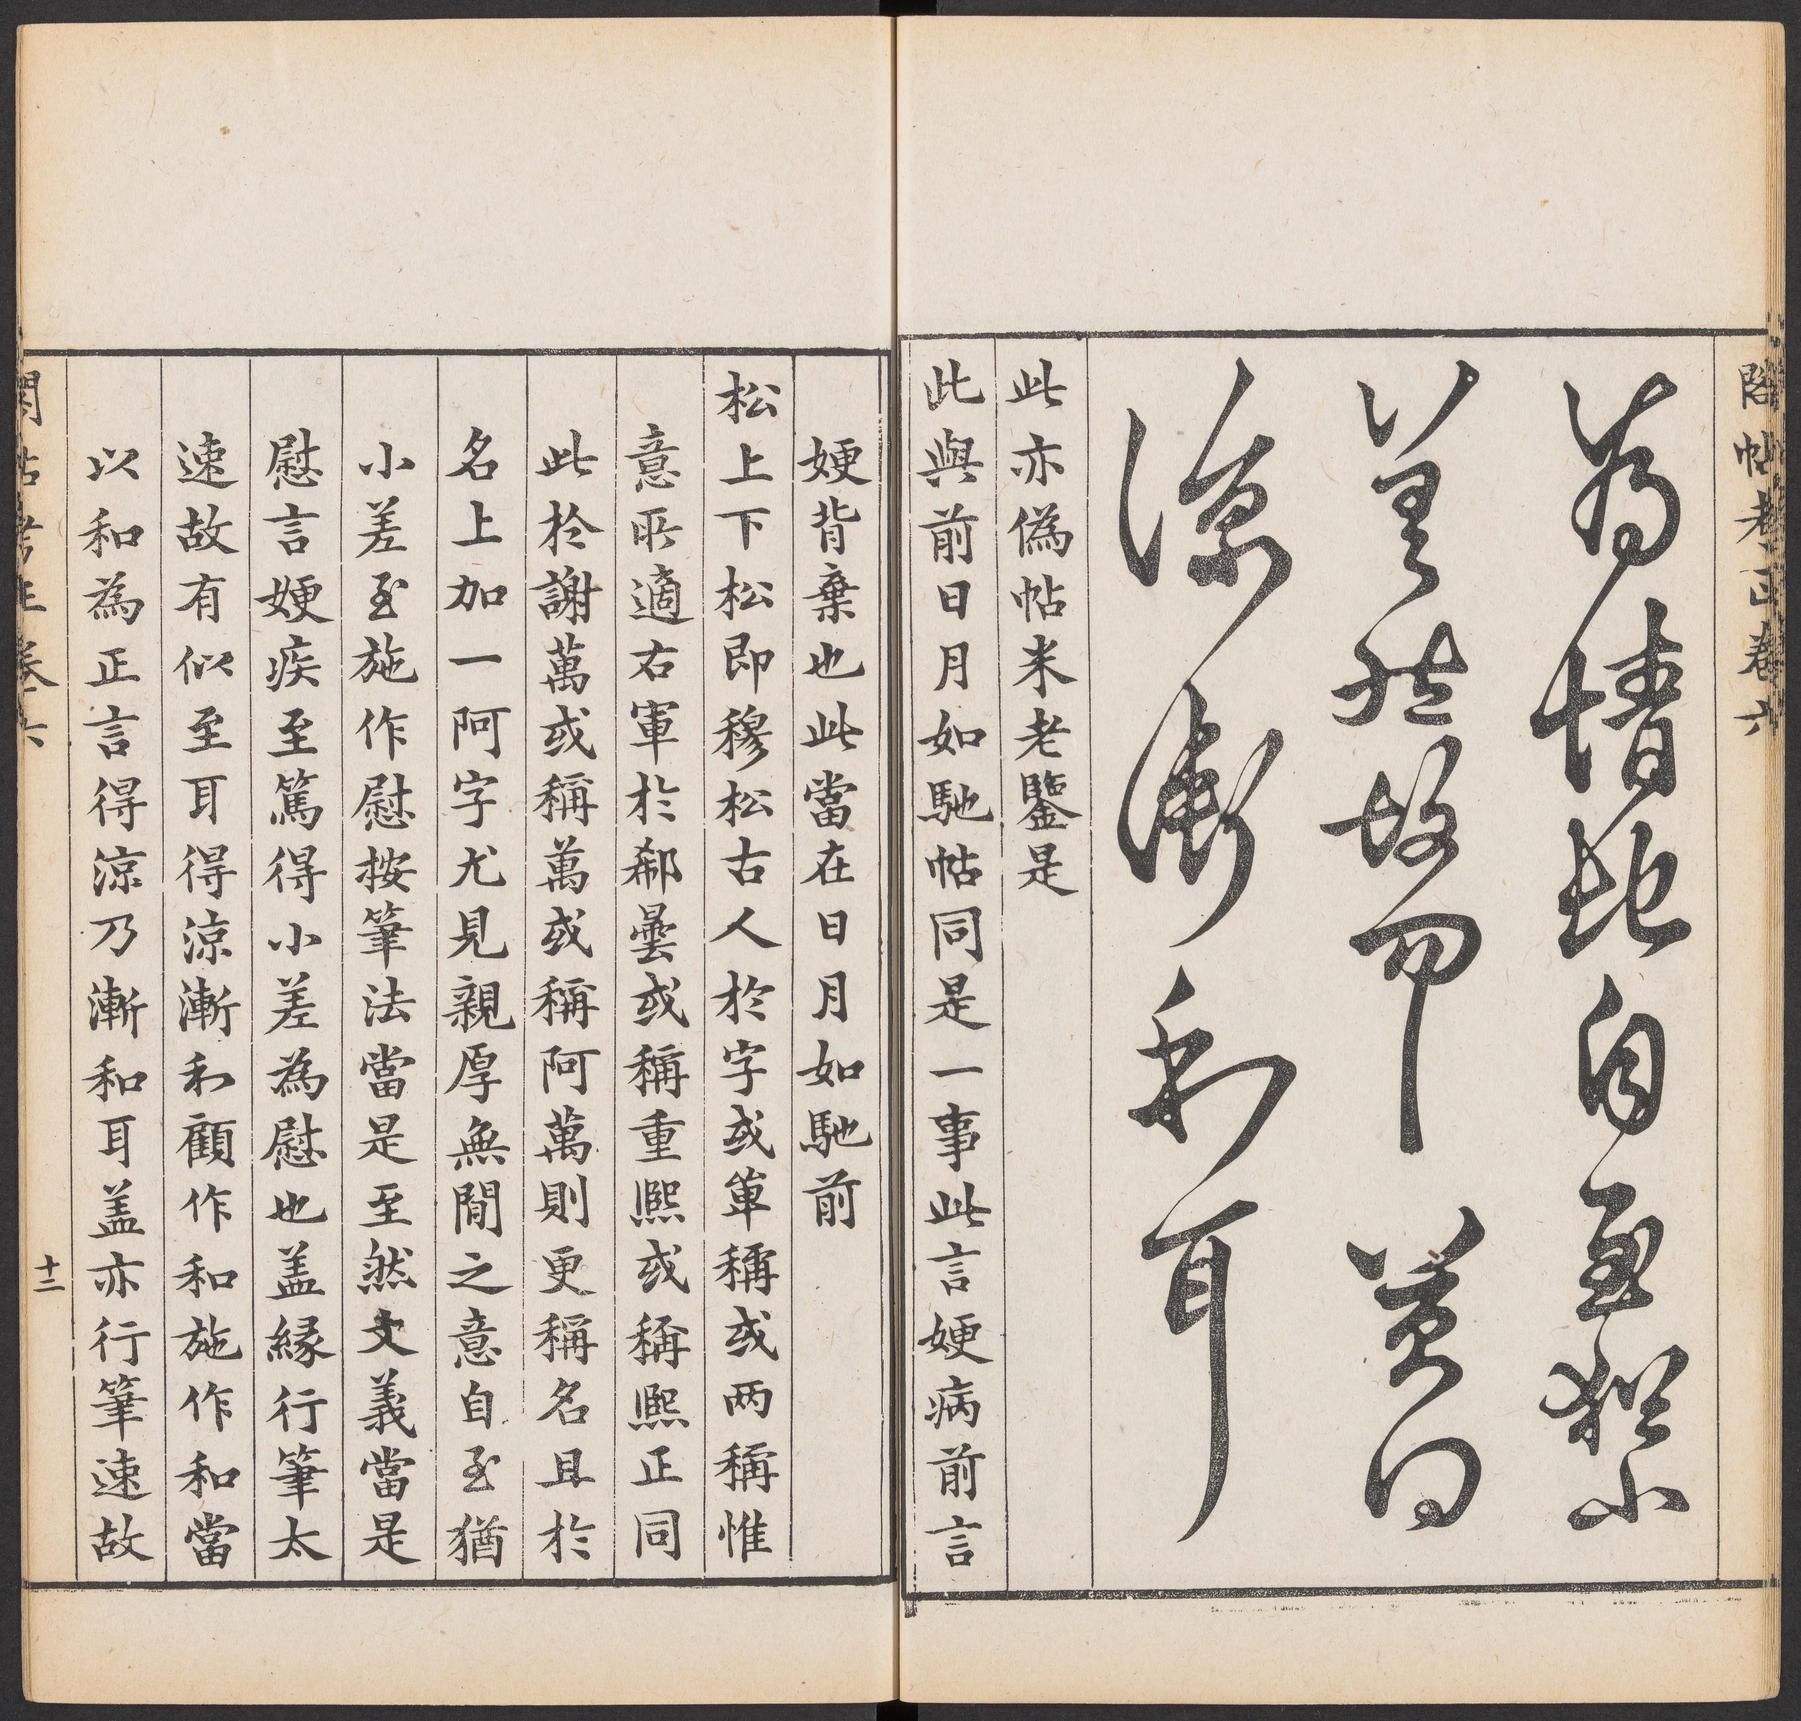 閣帖考正卷六
為情地自至猶小
差然故冀得
涼漸和耳
此亦偽帖米老鑒是
此與前日月如馳帖同是一事此言㛐病前言
㛐背棄也此當在日月如馳前
松上下松即穆松古人於字或單稱或两稱惟
意所適右軍於郗曇或稱重熙或稱熙正同
此於謝萬或稱萬或稱阿萬則更稱名且於
名上加一阿字尤見親厚無間之意自至猶
小差至施作慰按筆法當是至然文義當是
慰言㛐疾至篤得小差為慰也盖緣行筆太
速故有似至耳得涼漸和顧作和施作和當
以和為正言得涼乃漸和耳盖亦行筆速故
閣帖考正卷六
十二